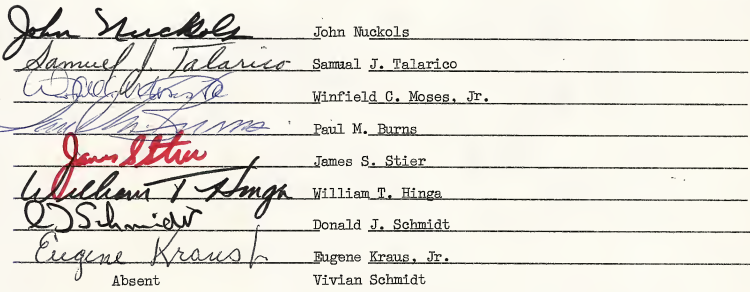 John Nuckols John Nuckols
Samuel J. Talarico Samual J. Talarico
Winfield C. Moses, Jr.
Paul M. Burns Paul M. Burns
James S Stier James S. Stier
William T Hinga William T. Hinga
D J Schmidt Donald J. Schmidt
Eugene Kraus Jr Eugene Kraus, Jr.
Absent Vivian Schmidt